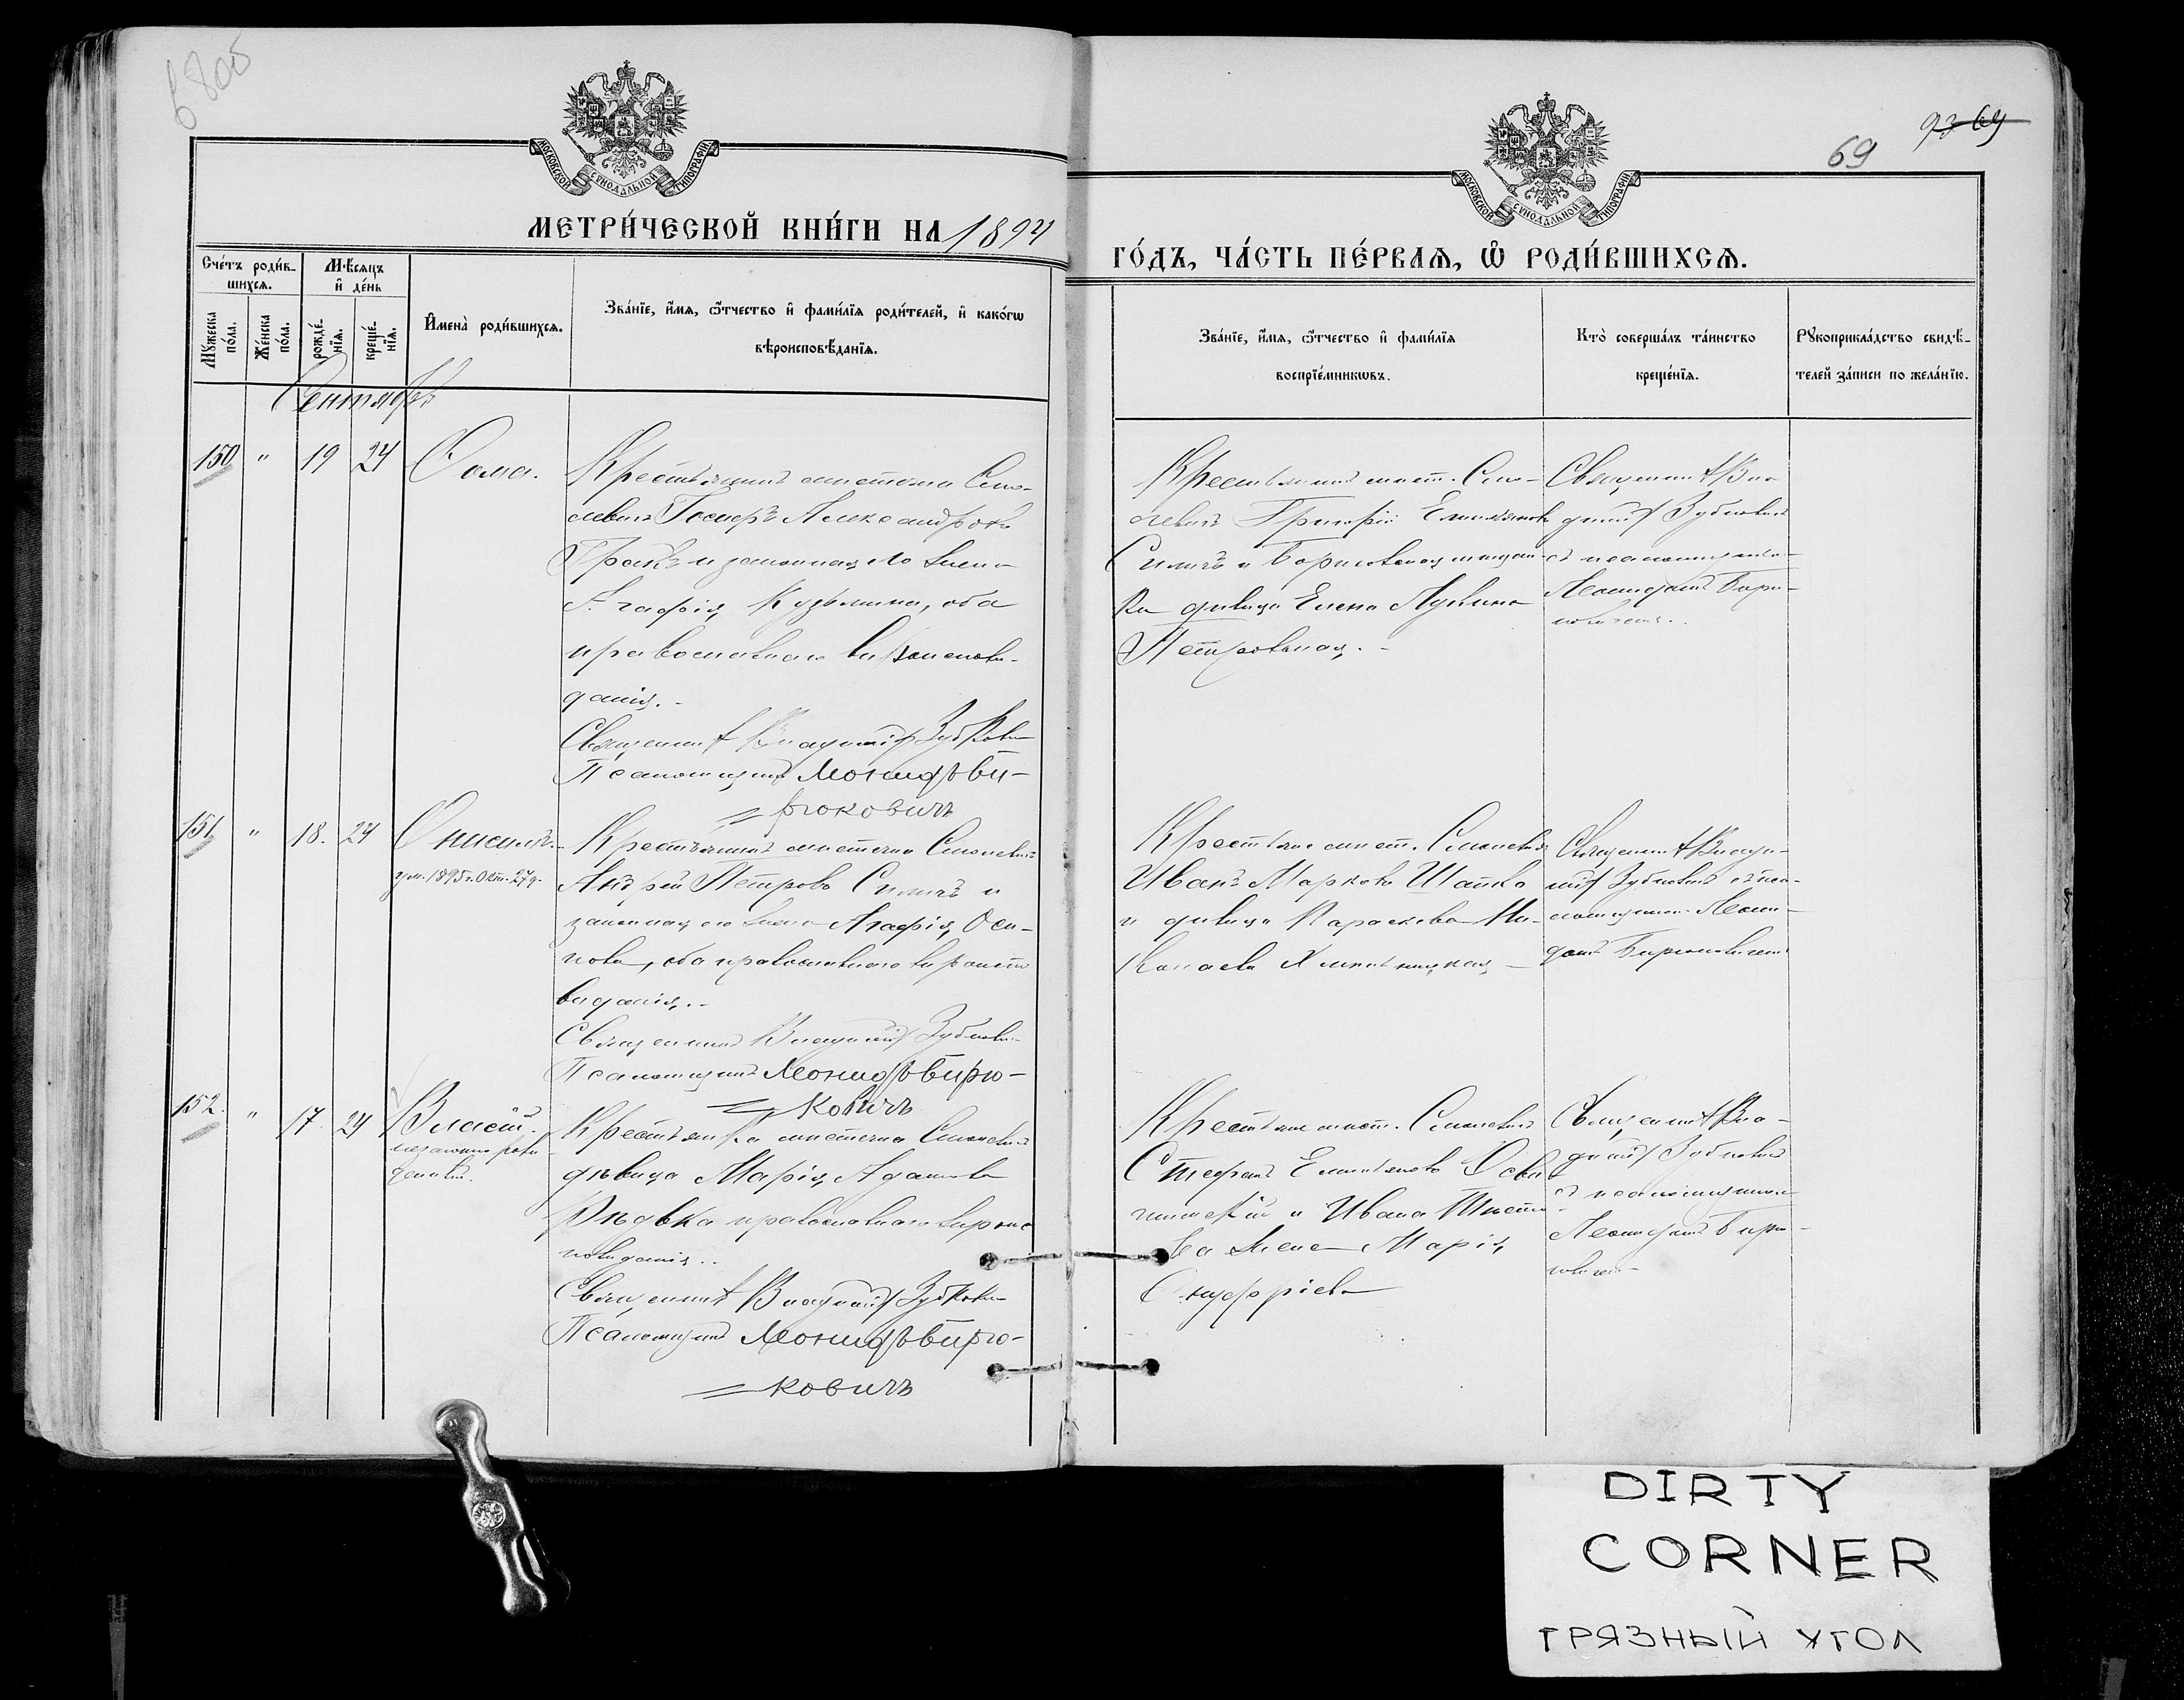 69
МЕТРИ́ЧЕСКОЙ КНИ́ГИ НА 1894
ГО́ДЪ, ЧА́СТЬ ПЕ́РВАЯ, Ѡ РОДИ́ВШИХСЯ.
МОСКОВСКОЙ СѴНОДАЛЬНОЙ ТИПОГРАФІИ
МОСКОВСКОЙ СѴНОДАЛЬНОЙ ТИПОГРАФІИ
Сче́тъ роди́в-
шихся.
Мѣсяцъ
и де́нь
Мꙋжеска по́ла.
Же́нска по́ла.
рожде́-
нїя.
креще́-
нїя.
И҆мена̀ роди́вшихся.
Зва́нїе, и҆́мя, ѻ҆́тчество и҆ фами́лїя роди́телей, и҆ како́гѡ
вѣроисповѣ́данїя.
Зва́нїе, и҆́мя, ѻ҆́тчество и҆ фами́лїя
воспрїе́мникѡвъ.
Кто̀ соверша́лъ та́инство
креще́нїя.
Рꙋкоприкла́дство свидѣ́-
телей за́писи по жела́нїю.
Сентябрь
150 " 19 24 Ѳома.
Крестьянинъ мѣстечка Смо-
левичъ Госифъ Александровъ
и законная его жена
Агафія Кузьмина, оба
православнаго вѣроисповѣ-
данія.-
Священникъ Владиміръ Зубковичъ
Псаломщикъ Леонидъ Би-
рюковичъ
Крестьянинъ мѣст. Смо-
левичъ Григорій Емельяновъ
Силичъ и Борисовская мѣщан-
ка дѣвица Елена Лукина
Петровская.-
Священникъ Вла-
диміръ Зубковичъ
съ псаломщикомъ
Леонидомъ Бирю-
ковичемъ.
151 " 18. 24 Онисимъ.
ум. 1895 г. Окт. 27 д.
Крестьянинъ мѣстечка Смолевичъ
Андрей Петровъ Силичъ и
законная его жена Агафія Оси-
пова, оба православнаго вѣроиспо-
вѣданія.-
Священникъ Владиміръ Зубковичъ
Псаломщикъ Леонидъ Бирю-
ковичъ
Крестьяне мѣст. Смолевичъ
Иванъ Марковъ Шатко
и дѣвица Параскева Ни-
колаева
Священникъ Влади-
міръ Зубковичъ съ пса-
ломщикомъ Леони-
домъ Бирюковичемъ
152. " 17. 24 Власій.
незаконно рож-
денный.
Крестьянка мѣстечка Смолевичъ
дѣвица Марія Адамова
православнаго вѣроис-
повѣданія..
Священникъ Владиміръ Зубковичъ
Псаломщикъ Леонидъ Бирю-
ковичъ
Крестьяне мѣст. Смолевичъ
Стефанъ Емельяновъ
и Ивана
жена Марія
Онуфріева
Священникъ Вла-
диміръ Зубковичъ
съ псаломщикомъ
Леонидомъ Бирю-
ковичемъ
DIRTY
CORNER
ГРЯЗНЫЙ УГОЛ